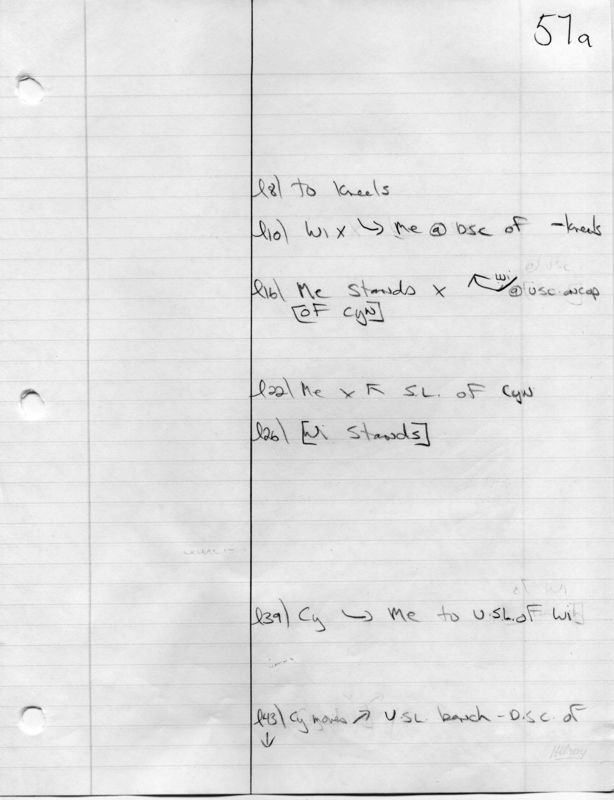 57a
l8) to kneels
l10) Wi x ↪ Me @ DSC of - kneels
Wi
l16) Me Stands x @ USC
[of Cyn]
l22) Me x ↖ S.L. of Cyn
l26) [Wi Stands]
l39) Cy ↪ Me to U.S.L. of Wi
l43) Cy moves ↗ U.S.L. bench - D.S.C. of
↓